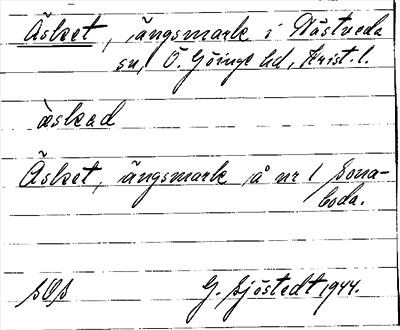 Äsket, ängsmark i Nästveda
sn, Ö. Göinge hd, Krist. l.
äskad
Äsket, ängsmark å nr 1 Sona-
boda.
SOS
G. Sjöstedt 1944.